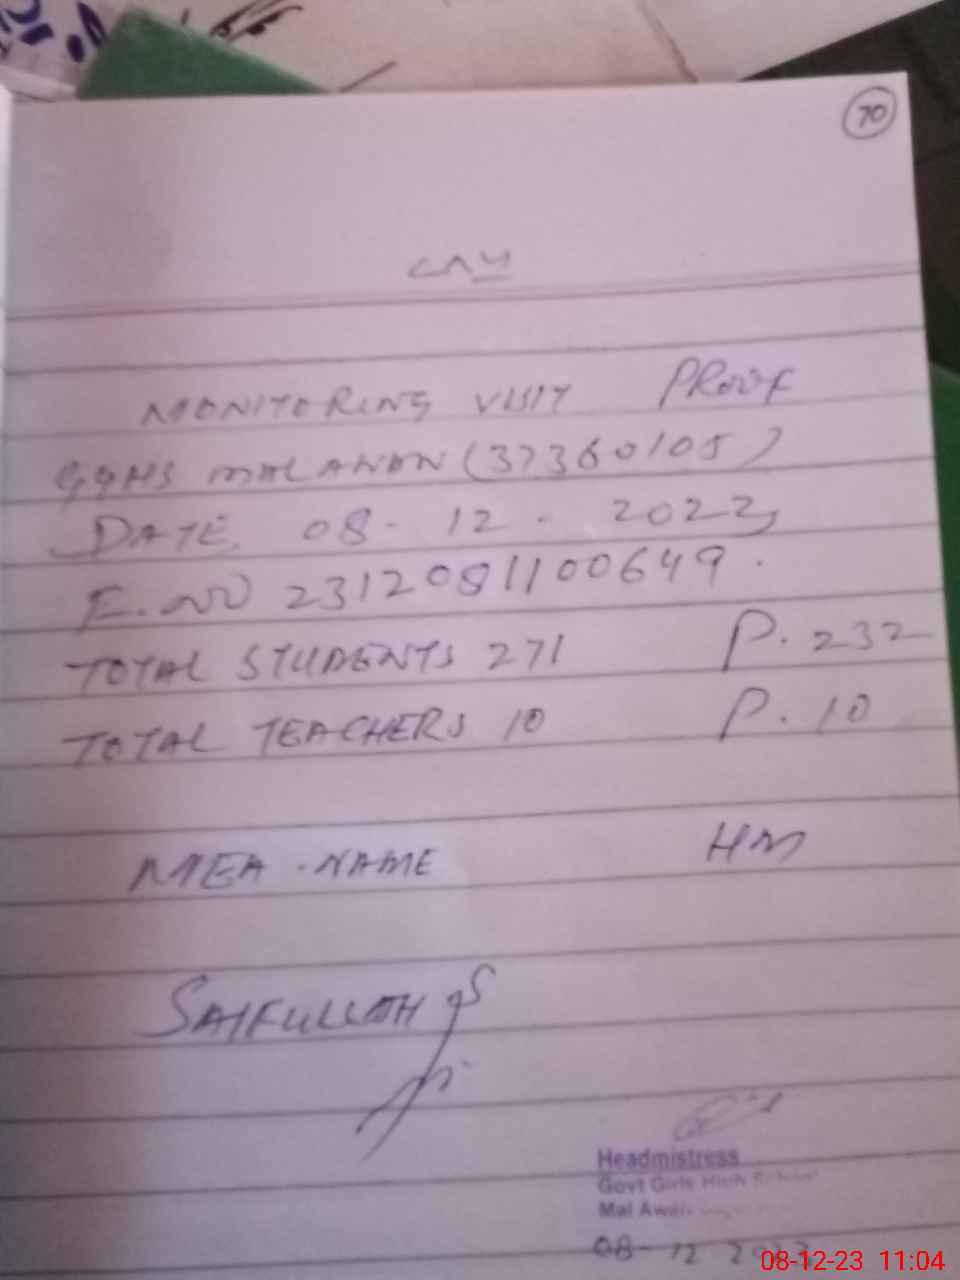 70
MONITORING VISIT PROOF
GGHS MAL AWAN (37360105)
DATE 08-12-2023
E.NO 2312081100649.
TOTAL STUDENTS 271 P. 232
TOTAL TEACHERS 10 P. 10
MEA NAME HM
SAIFULLAH
Headmistress
Govt Girls High School
Mal Awan
08-12 2023
08-12-23 11:04